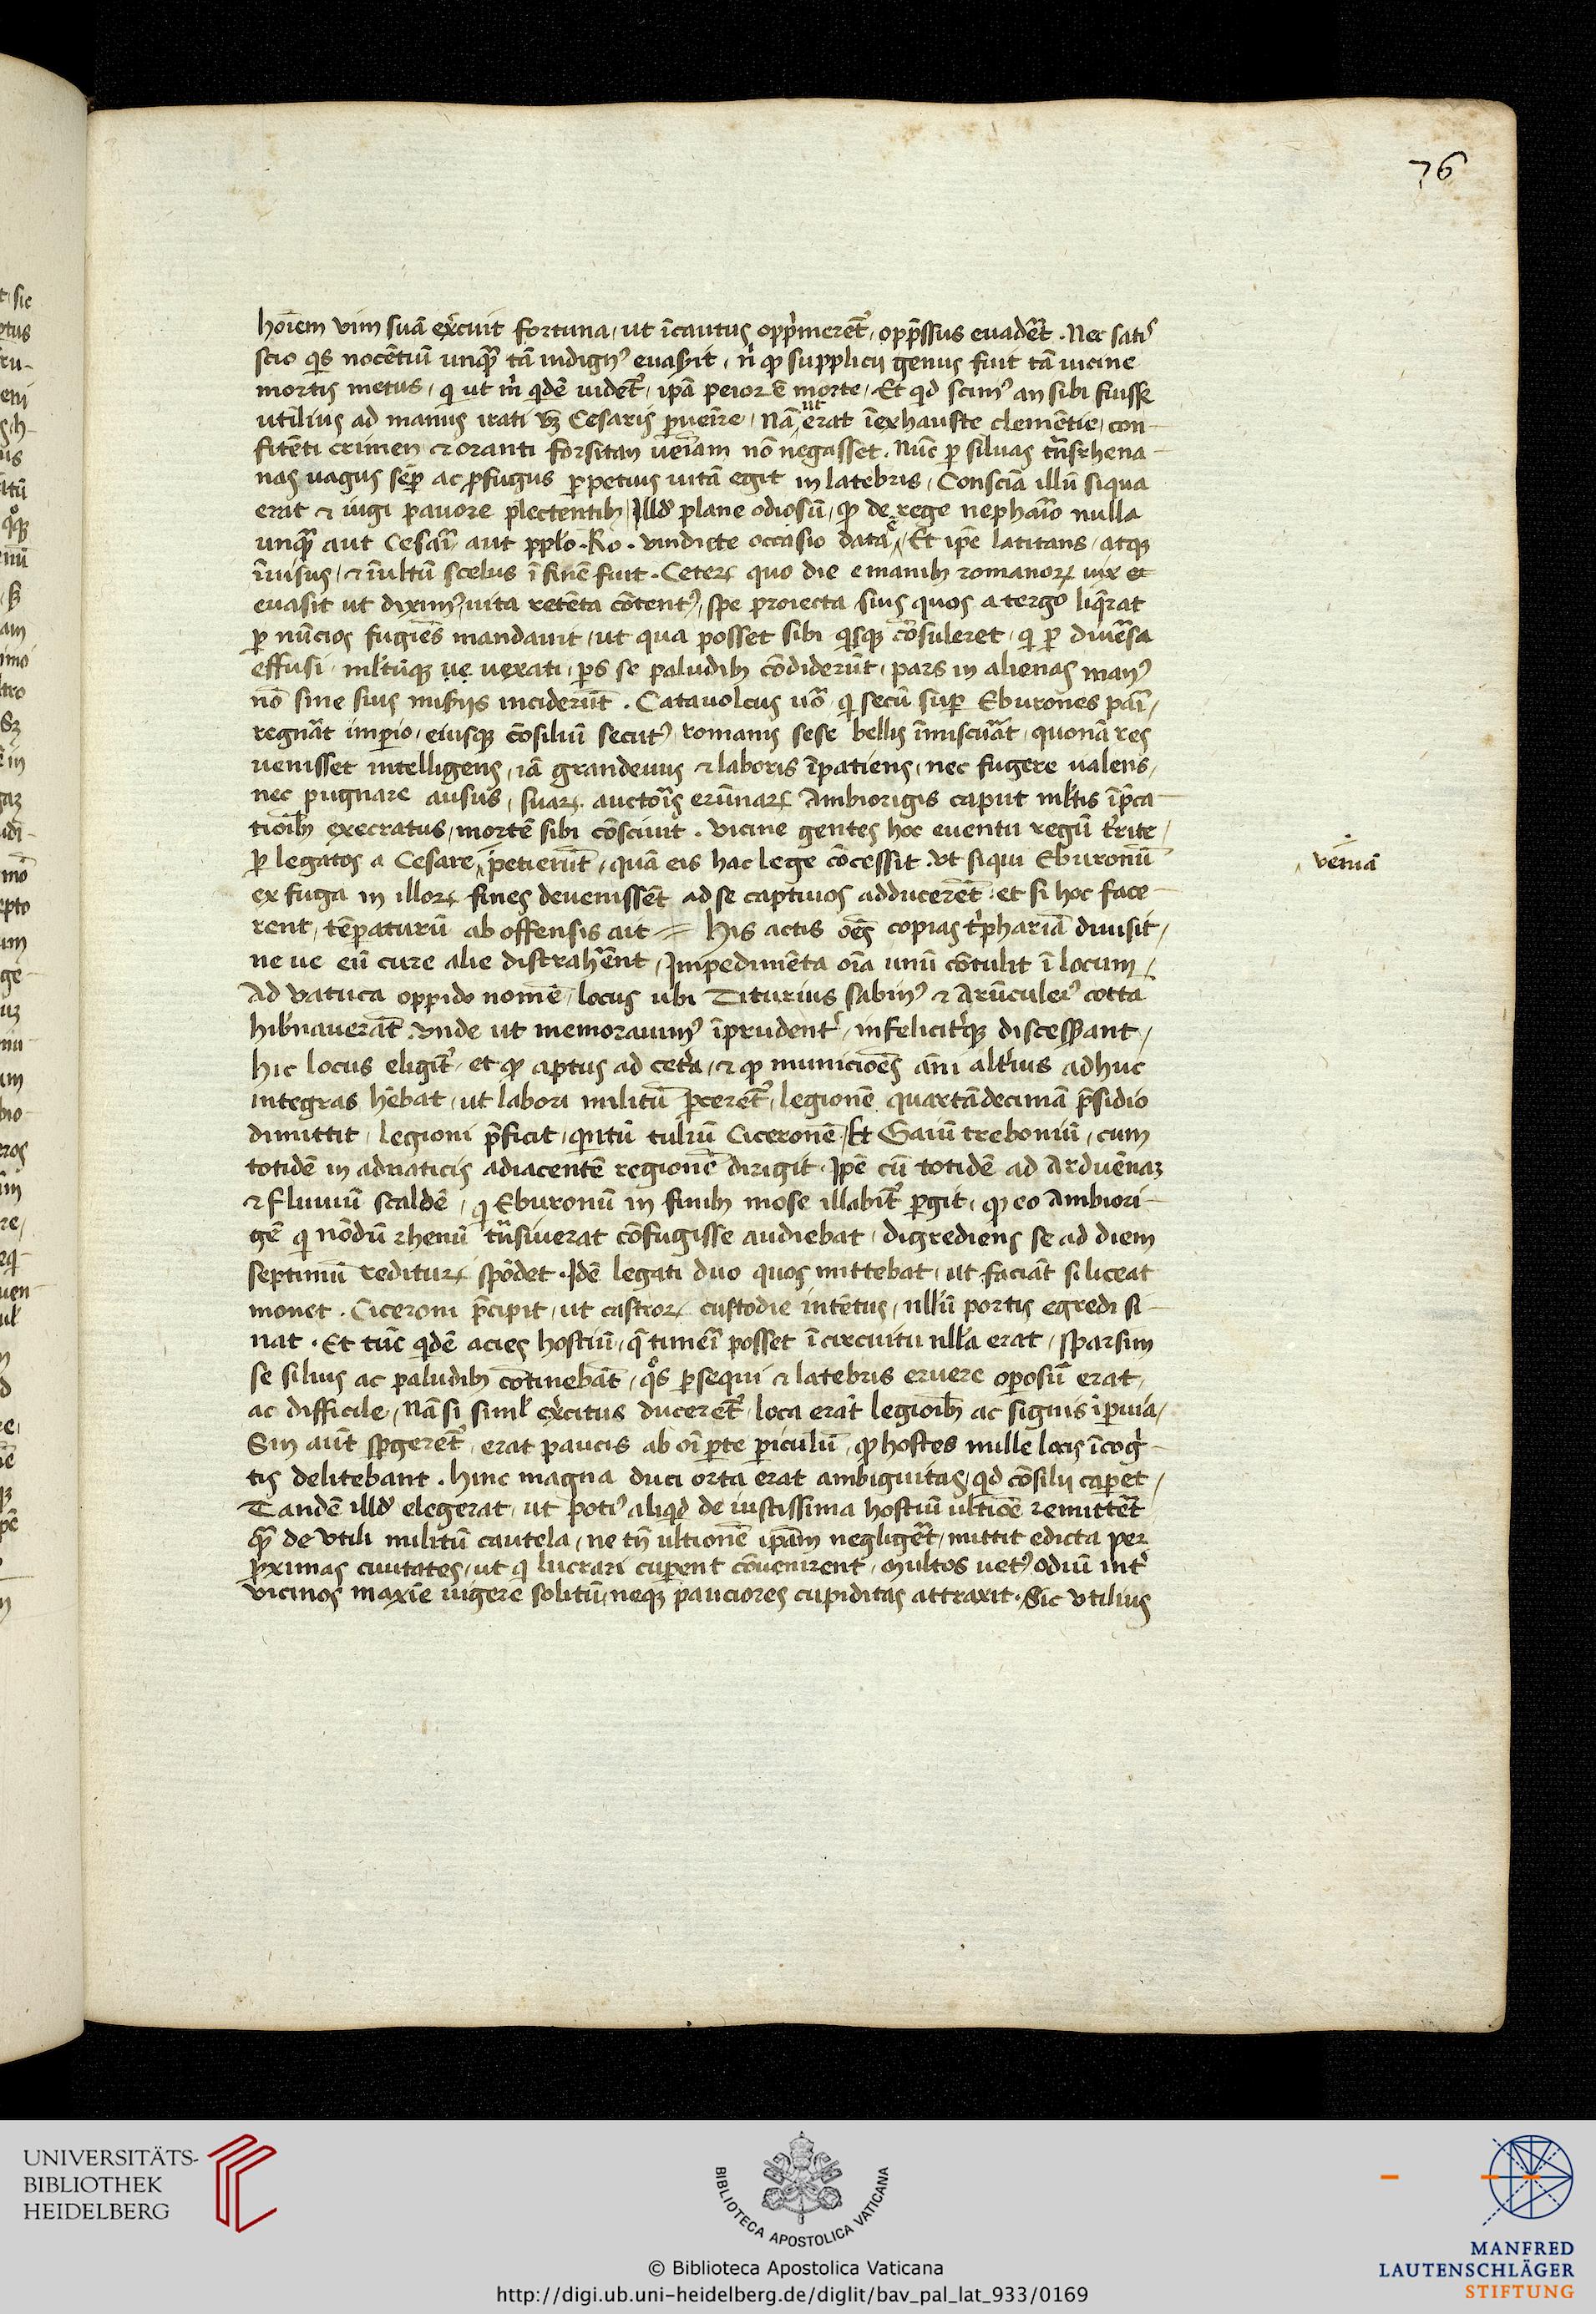 76
hoīem vim suā ex̄cuit fortuna, ut īcautus opp̄merēt᷑, opp̄ssus euadēt. Nec satis
scio q̄s nocētiū unq̄ tā indign᷒ euasit, ň ꝙ supplicii genus fuit tā uicine
mortis metus, q ut m̄ qdē uidet᷑, ip̄ā peior ē morte. Et qd scim᷒ an sibi fuiss
utilius ad manus irati Cesaris puenire. Nā ut erat īexhauste clemētie, con-
fitēti crimen & oranti forsitan ueīam nō negasset. Nūc p siluas tn̄srhena-
nas uagus sēp ac pfugus ppetuis uitā egit in latebris. Consciā illū siqua
erat & iugi pauore plectentib, Illd plane odiosū, ꝙ de rege nephario nulla
unq̄ aut Cesai aut pplo. Ro. vindicte occasio data ē. Et ipē latitans, atq̨
īuisus, & īultū scelus ī finē fuit. Ceteꝝ quo die e manib romanoꝝ uix et
euasit ut dixim᷒, uita retēta cōtent᷒, spe proiecta suis quos a tergo liq̄rat
p nūcios fugiēs mandauit, ut qua posset sibi qsq̨ cōsuleret, q p diuersa
effusi, ml̄tūq̨ ue uexati, ps se paludib cōdiderūt, pars in alienas man᷒
nō sine suis misiis inciderūt. Catauolcus uō q secū sup Eburones pāi,
regnāt impio, eiusq̨ cōsiliū secut᷒, romanis sese bellis īmiscuāt, quonā res
uenisset intelligens, iā grandeuus & laboris īpatiens, nec fugere ualens,
nec pugnare ausus, suaꝝ auctoīs erūnaꝝ Ambiorigis caput ml̄tis īp̄ca-
tioīb execratus, mortē sibi cōsciuit. Vicine gentes hoc euentu regū trite,
p legatos a Cesare petierūt, quā eis hac lege cōcessit. Vt siqui Eburonū
veniā
ex fuga in illoꝝ fines deuenissēt ad se captiuos adducerēt. et si hoc face-
rent, tēpaturū ab offensis ait = His actis oēs copias tiphariā diuisit,
ne ue eū cure alie distrahent, Impedimēta oīa unū cōtulit ī locum,
Ad vatuca oppido nomē, locus ubi Titurius sabin᷒ & Arūculei᷒ cotta
hibnauerāt. Vnde ut memorauim᷒ īprudent, infelicitq̨ discesserant,
Hic locus eligit᷑, et ꝙ aptus ad ceta, & ꝙ municiōes āni altius adhuc
integras hēbat, ut labori militū pceret᷑, legionē quartādecimā p̄sidio
dimittit, legioni p̄ficit, qntū tuliū Ciceronē. Et Gaiū treboniū, cum
totidē in aduaticis adiacentē regionē dirigit. Ipē cū totidē ad Arduēnaz
& Fluuiū scaldē, q Eburonū in finib mose illabit᷑ pgit, ꝙ eo Ambiori-
gē q nōdū rhenū tn̄siuerat cōfugisse audiebat, digrediens se ad diem
septimū redituꝝ spōdet. Idē legati duo quos mittebat, ut faciāt si liceat
monet. Ciceroni p̄cipit, ut castroꝝ custodie intētus, nllū portis egredi si-
nat. Et tūc qdē acies hostiū, q̄ timeī posset ī circuitu nlla erat, sparsim
se siluis ac paludib cōtinebāt, qos psequi & latebris eruere oposū erat,
ac difficile, Nā si siml exercitus duceret᷑, loca erāt legioīb ac signis īpuia,
Sin aut spgeret᷑, erat paucis ab oī pte piculū, ꝙ hostes mille locis īcog-
tis delitebant. Hinc magna duci orta erat ambiguitas, qd cōsilii capet,
Tandē illd elegerat, ut poti᷒ aliqd de iustissima hostiū ultiōe remittēt
q̄ de vtili militū cautela, ne tn̄ ultionē ipām negligēt, mittit edicta per
pximas ciuitates, ut q lucrari cupent cōuenirent, Multos uet᷒ odiū int
vicinos maxīe uigere solitū, neq̨ pauciores cupiditas attraxit. Sic vtilius
UNIVERSITÄTS-
BIBLIOTHEK
HEIDELBERG
BIBLIOTECA APOSTOLICA VATICANA
© Biblioteca Apostolica Vaticana
http://digi.ub.uni-heidelberg.de/diglit/bav_pal_lat_933/0169
MANFRED
LAUTENSCHLÄGER
STIFTUNG